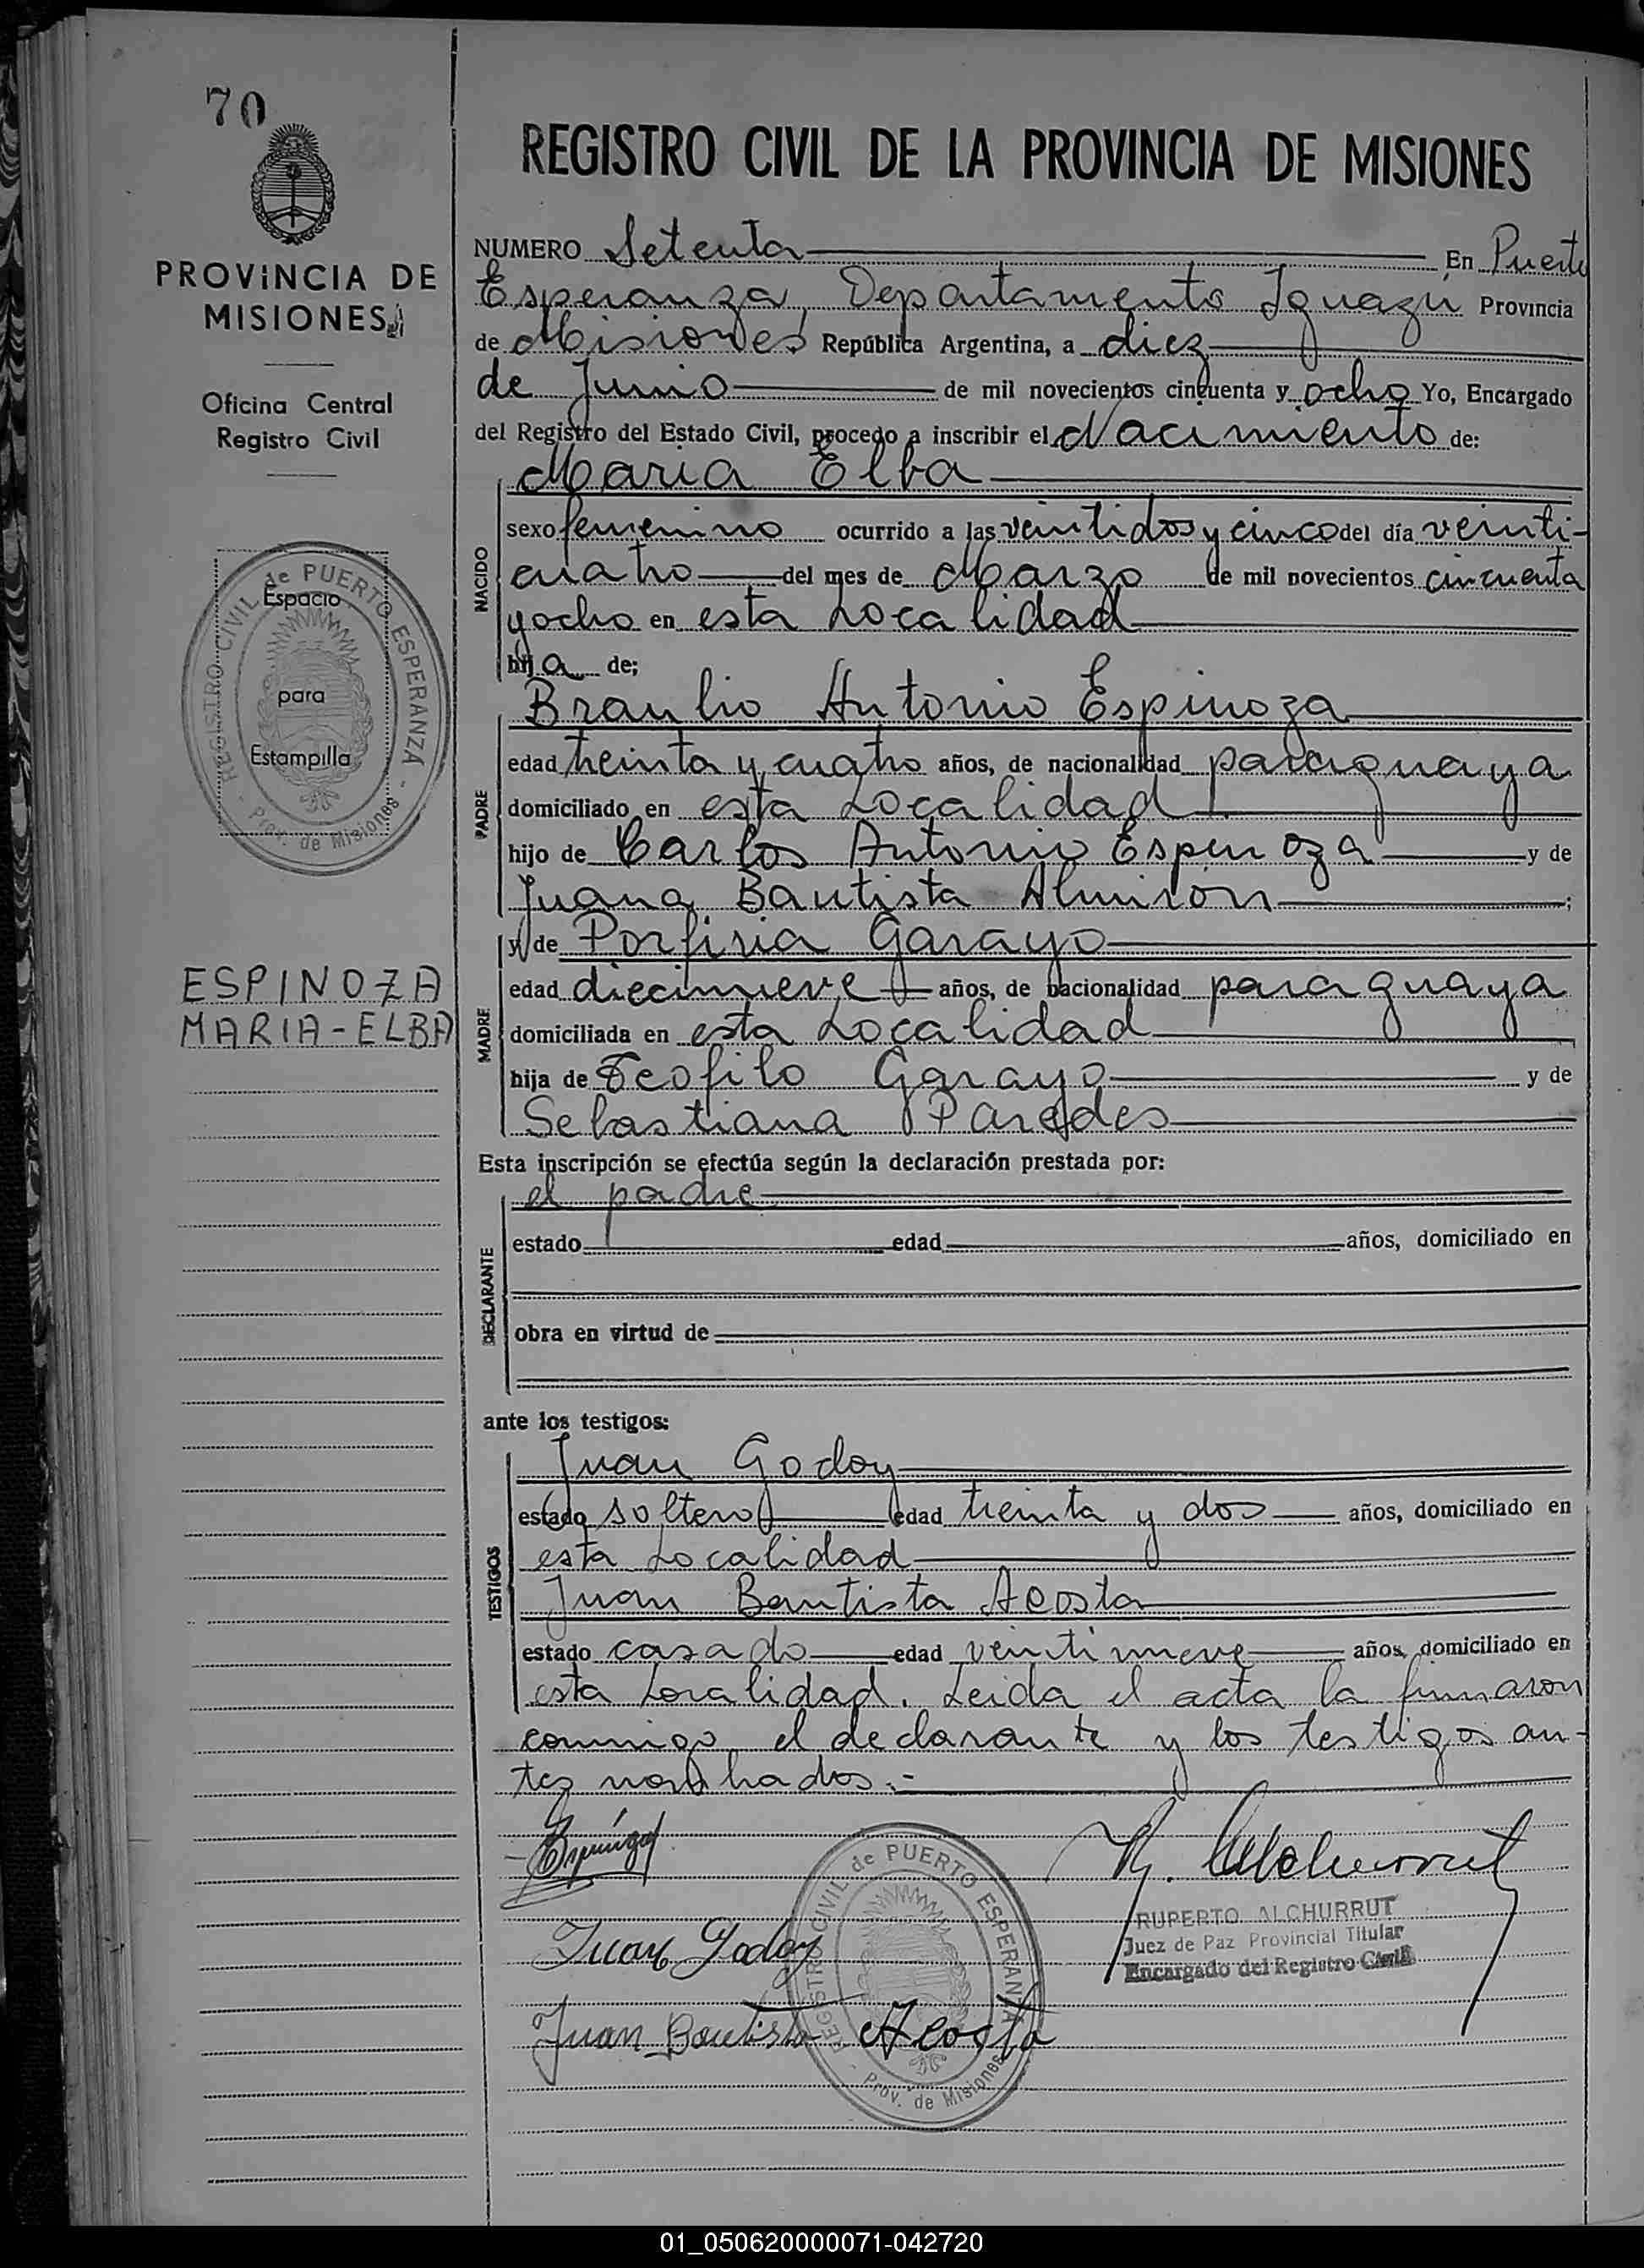 70
PROVINCIA DE
MISIONES
Oficina Central
Registro Civil
REGISTRO CIVIL de PUERTO ESPERANZA - Prov. de Misiones -
Espacio
para
Estampilla
ESPINOZA
MARIA-ELBA
REGISTRO CIVIL DE LA PROVINCIA DE MISIONES
NUMERO Setenta En Puerto
Esperanza, Departamento Iguazú Provincia
de Misiones República Argentina, a diez
de Junio de mil novecientos cincuenta y ocho Yo, Encargado
del Registro del Estado Civil, procedo a inscribir el Nacimiento de:
Maria Elba
NACIDO
sexo femenino ocurrido a las veintidos y cinco del día veinti-
cuatro del mes de Marzo de mil novecientos cincuenta
y ocho en esta Localidad
hija de;
Braulio Antonio Espinoza
PADRE
edad treinta y cuatro años, de nacionalidad paraguaya
domiciliado en esta Localidad
hijo de Carlos Antonio Espinoza y de
Juana Bautista Almirón ;
y de Porfiria Garayo
MADRE
edad diecinueve años, de nacionalidad paraguaya
domiciliada en esta Localidad
hija de Teofilo Garayo y de
Sebastiana Paredes
Esta inscripción se efectúa según la declaración prestada por:
el padre
DECLARANTE
estado edad años, domiciliado en
obra en virtud de
ante los testigos:
Juan Godoy
TESTIGOS
estado soltero edad treinta y dos años, domiciliado en
esta Localidad
Juan Bautista Acosta
estado casado edad veintinueve años, domiciliado en
esta Localidad. Leida el acta la firmaron
conmigo el declarante y los testigos an-
tes nombrados.-
Espinoza
R. Alchurrut
RUPERTO ALCHURRUT
Juez de Paz Provincial Titular
Encargado del Registro Civil
Juan Godoy
Juan Bautista Acosta
REGISTRO CIVIL de PUERTO ESPERANZA - Prov. de Misiones
01_050620000071-042720